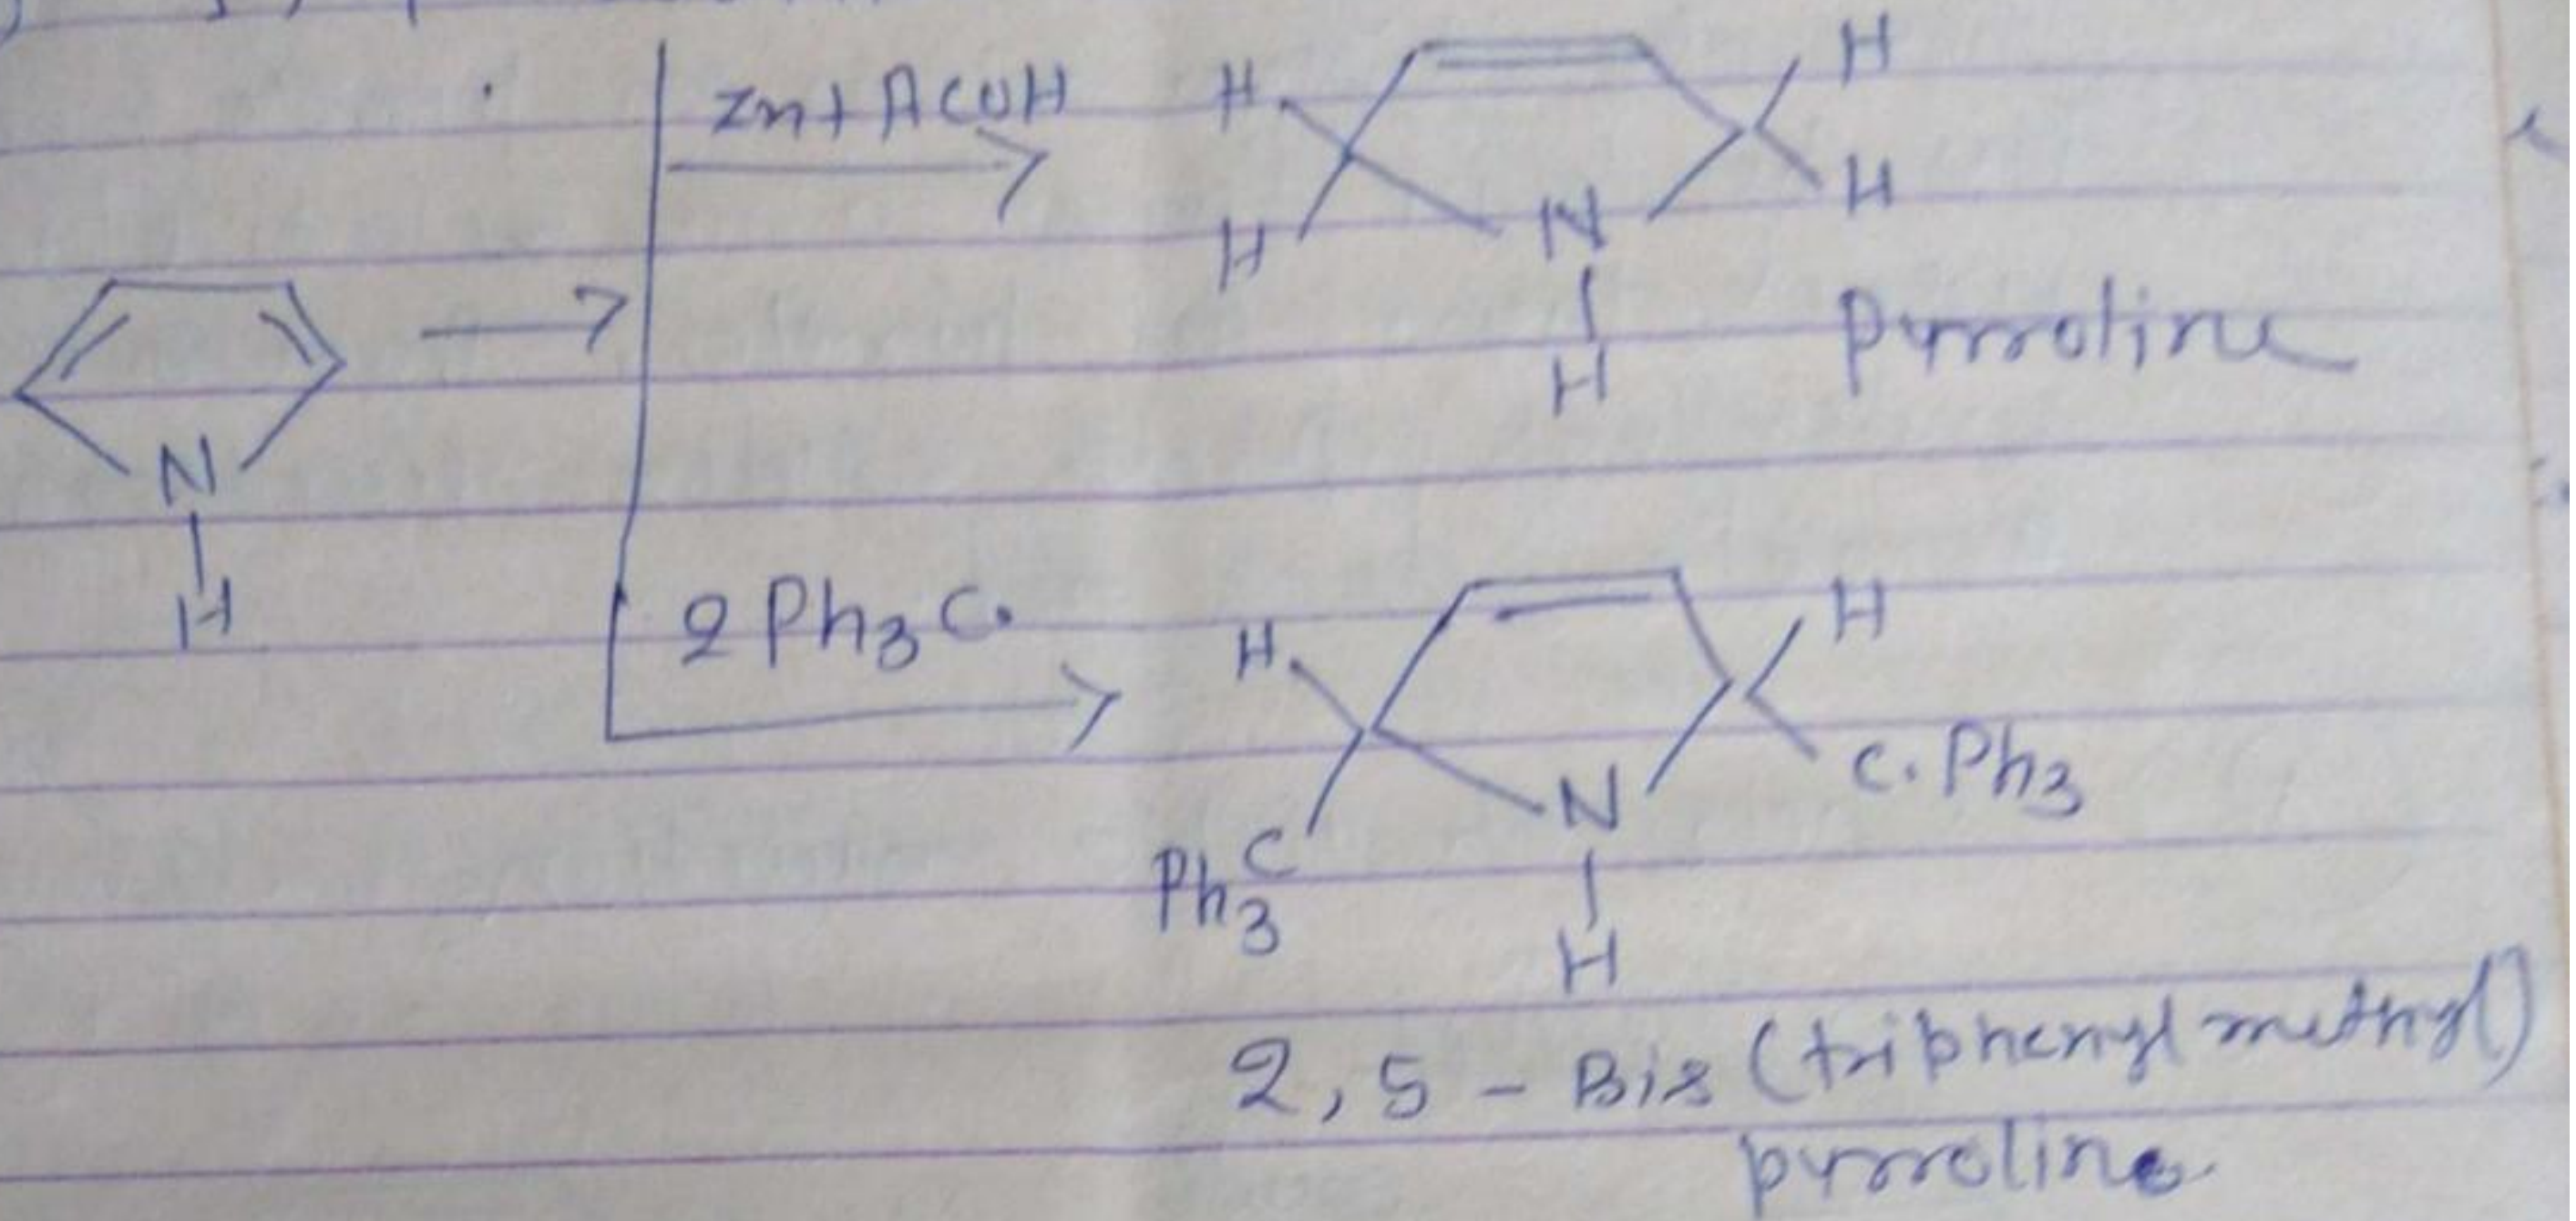 Zn+ AcOH
H
H
H
H
N
H
Pyrroline
N
H
2 Ph3C.
H
H
N
C.Ph3
Ph3C
H
2, 5 - Bis (triphenyl methyl)
pyrroline